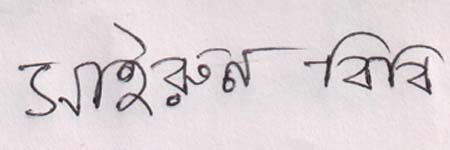 সাইরুন বিবি